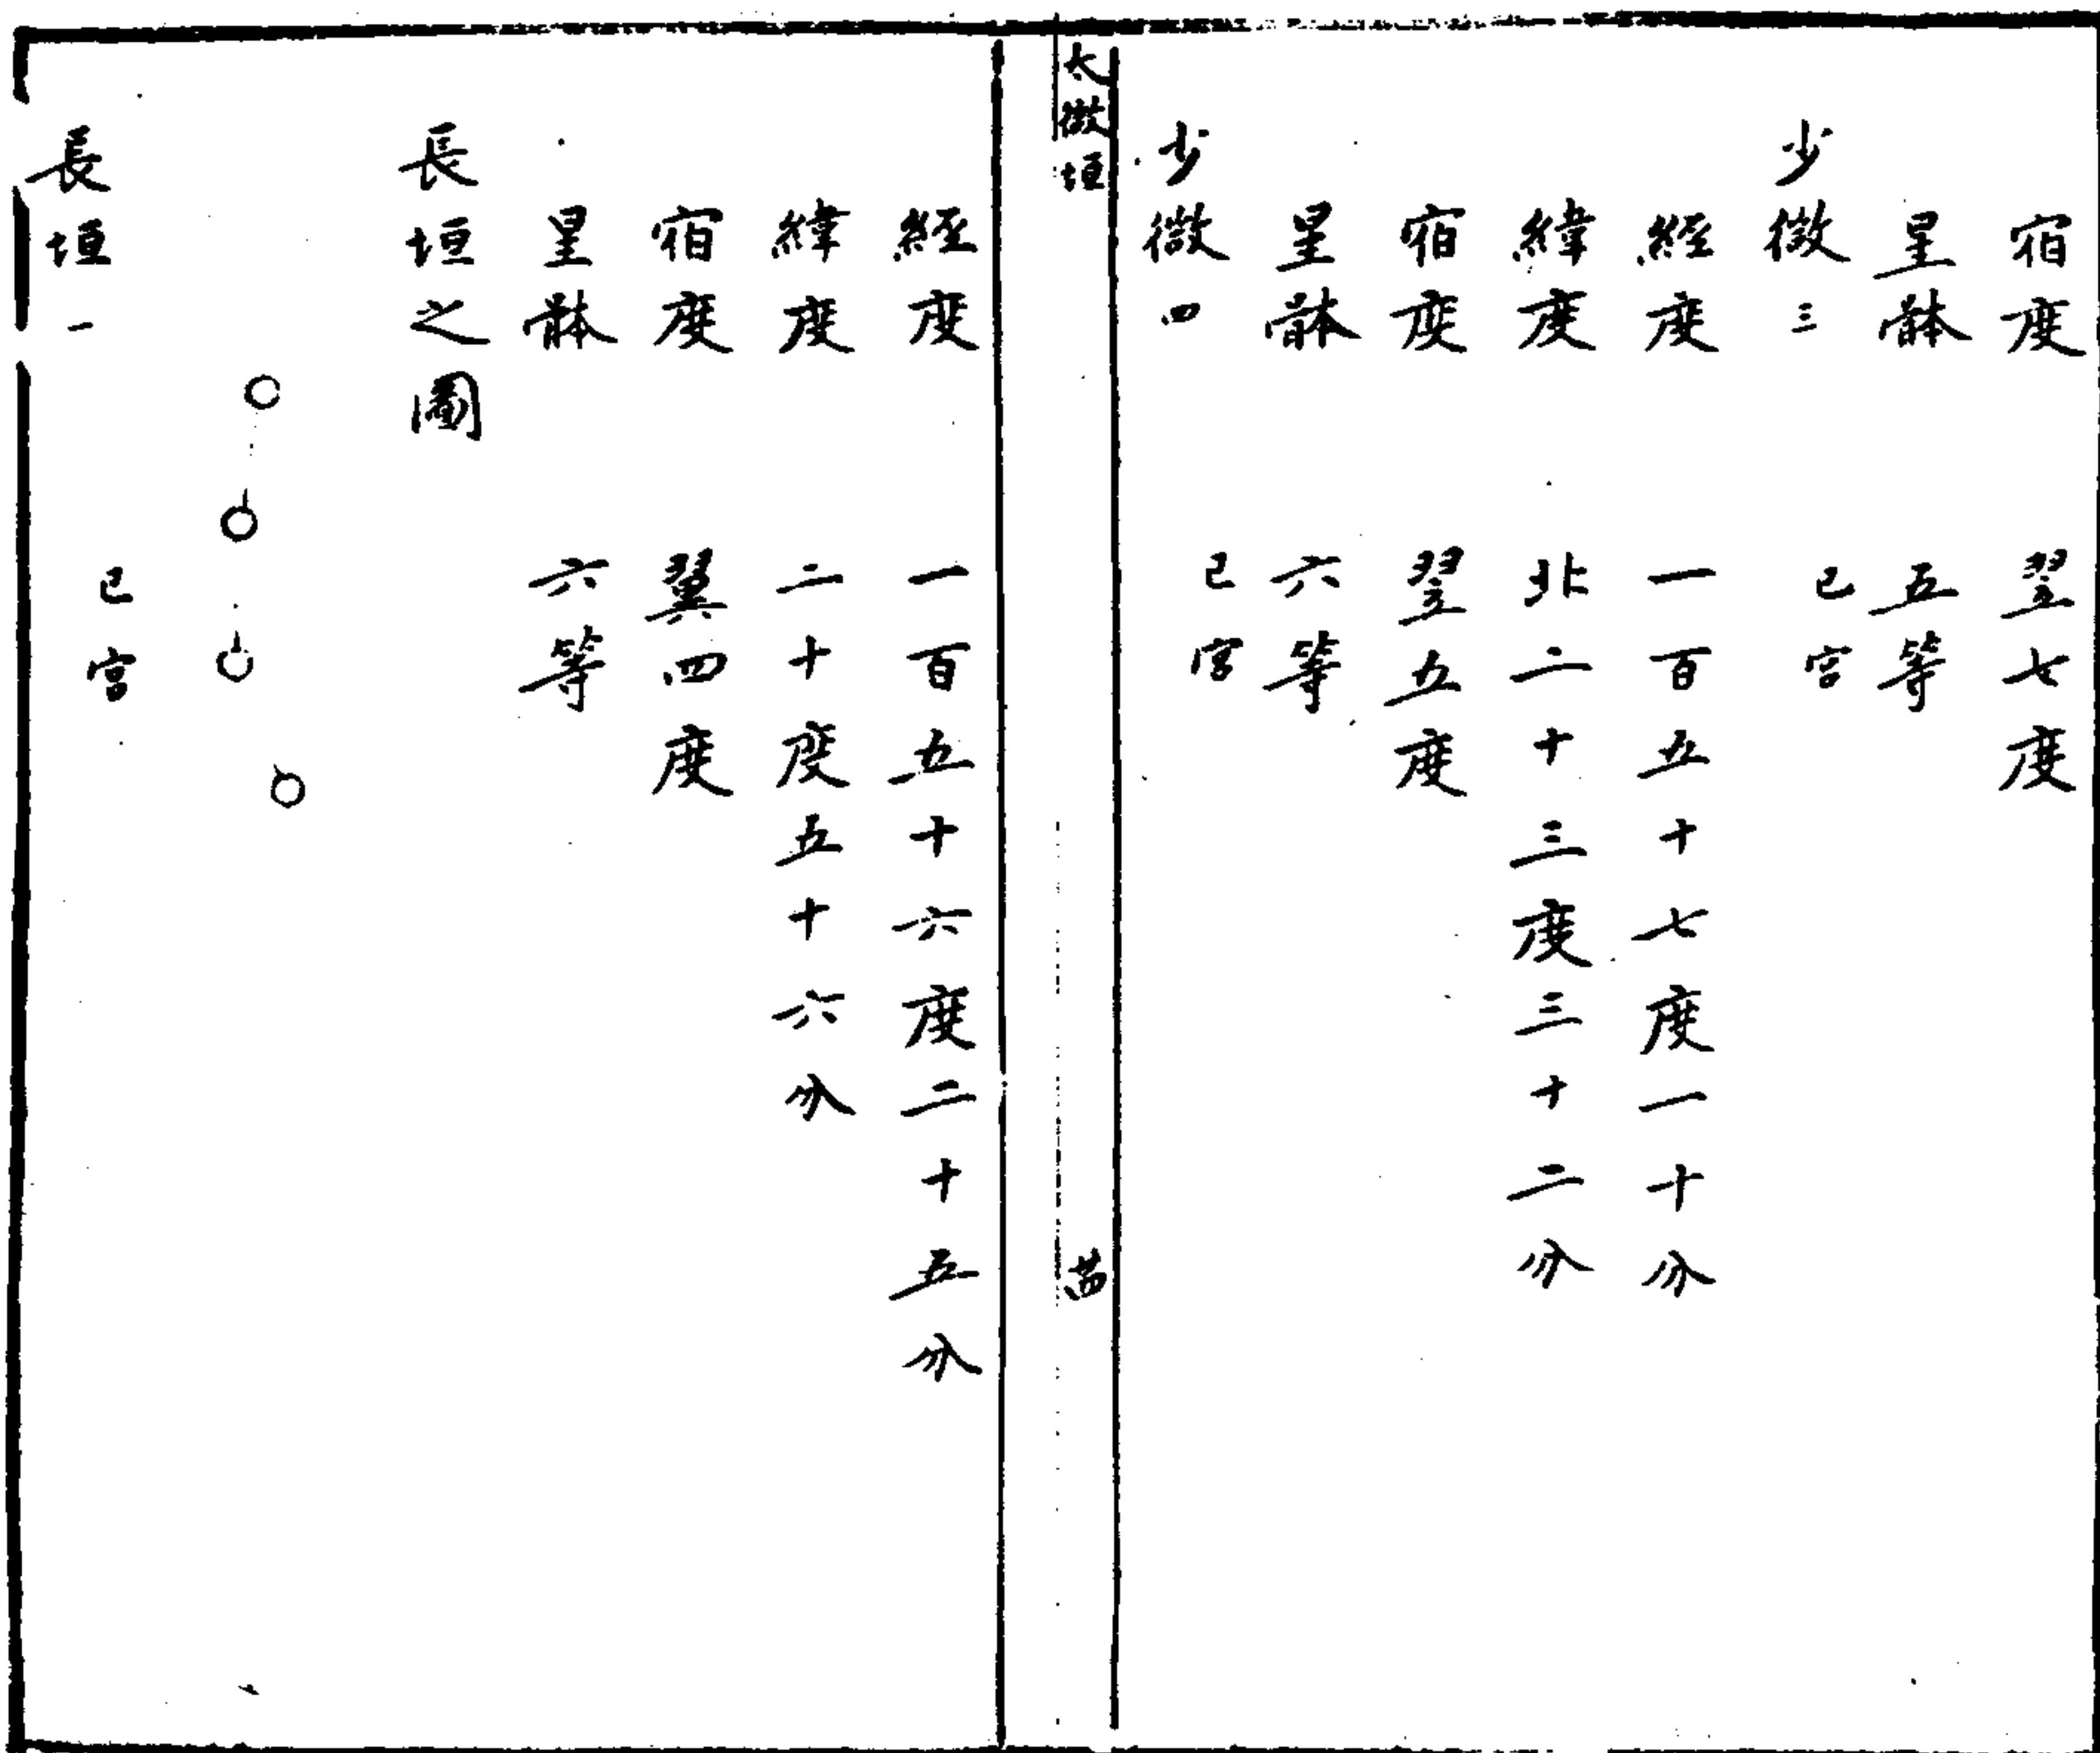 宿度 翌七度
星躰 五等
少微三 巳宮
經度 一百五十七度一十分
緯度 北二十三度三十二分
宿度 翌五度
星躰 六等
少微四 巳宮
太微垣 苗
經度 一百五十六度二十五分
緯度 二十度五十六分
宿度 翼四度
星躰 六等
長垣之圖
長垣一 巳宮